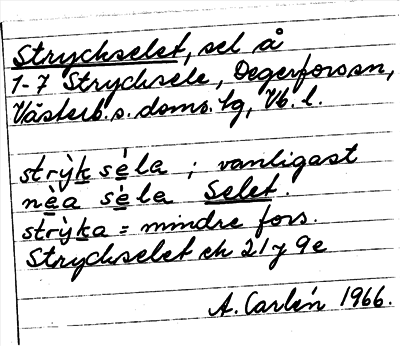 Stryckselet, sel å
1-7 Strycksele, Degerfors sn,
Västerb. s. doms. tg, Vb. l.
strỳk sé̱la ; vanligast
nè̱a sè̱la Selet.
strỳka = mindre fors.
Stryckselet ek 21 y 9e
A. Carlén 1966.